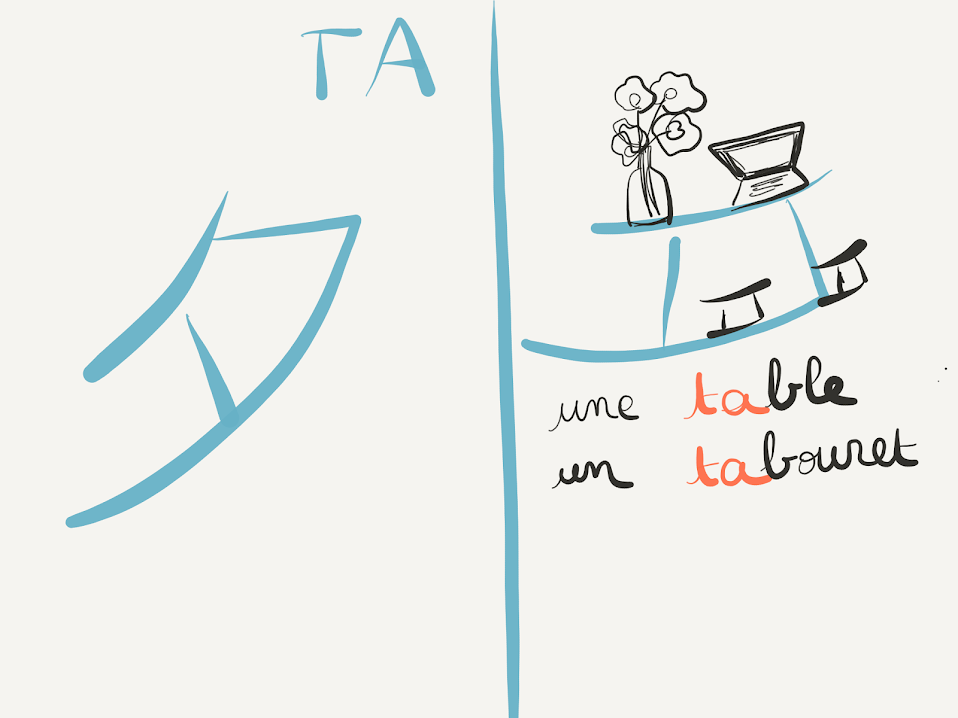 TA
タ
une table
un tabouret